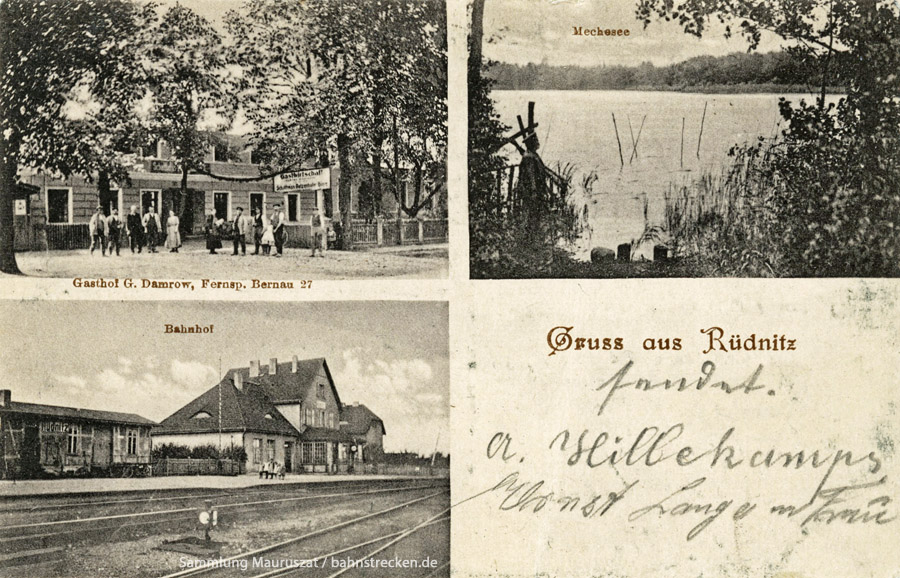 Gastwirtschaft
Gasthof G. Damrow, Fernsp. Bernau 27
Mechesee
Bahnhof
Rüdnitz
Gruss aus Rüdnitz
sendet.
A. Hillekamps
Ernst Lange u Frau
Sammlung Mauruszat / bahnstrecken.de